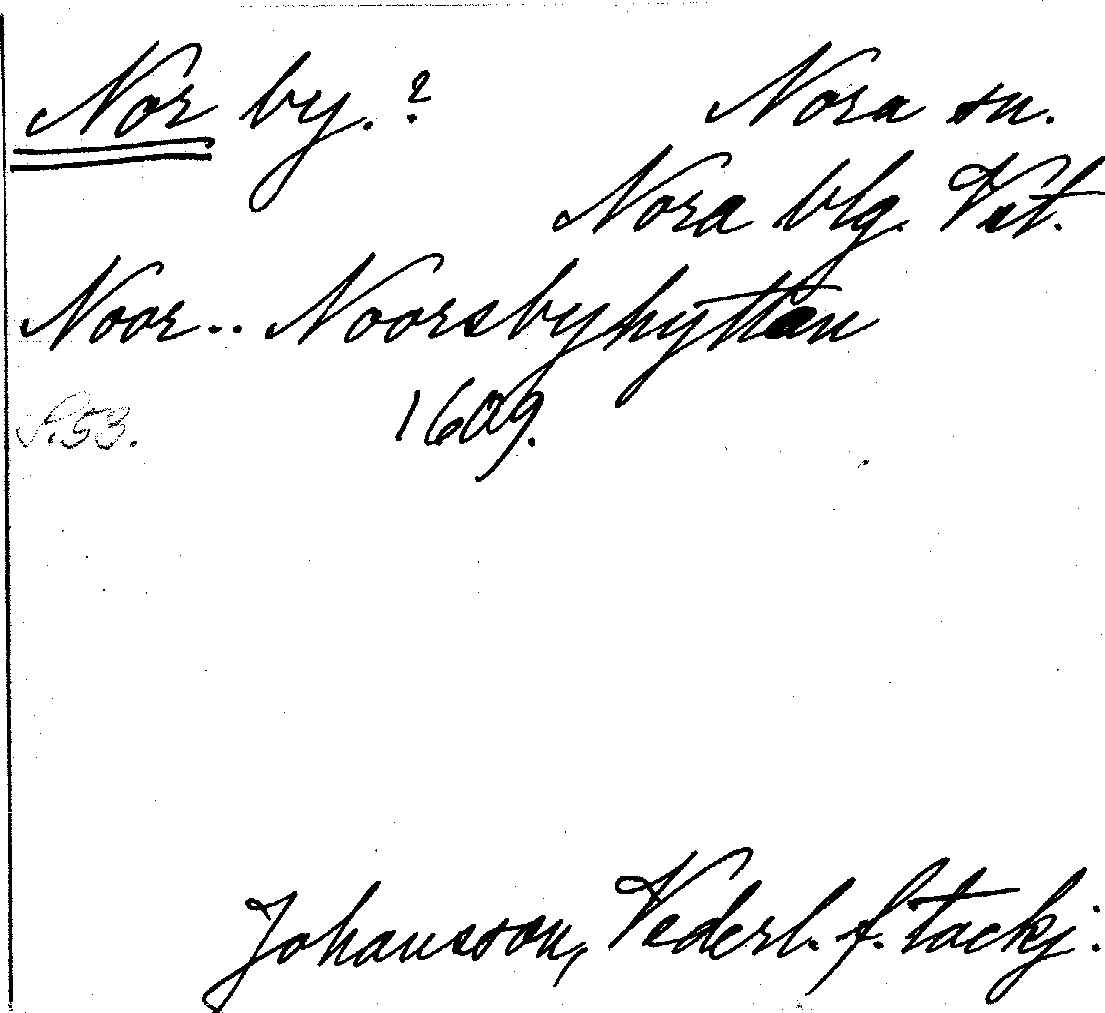 Nor by.? Nora sn.
Nora blg. Vst.
Noor.. Noorsbyhyttan
S. 53. 1609.
Johansson, Vederl. f. tackj: